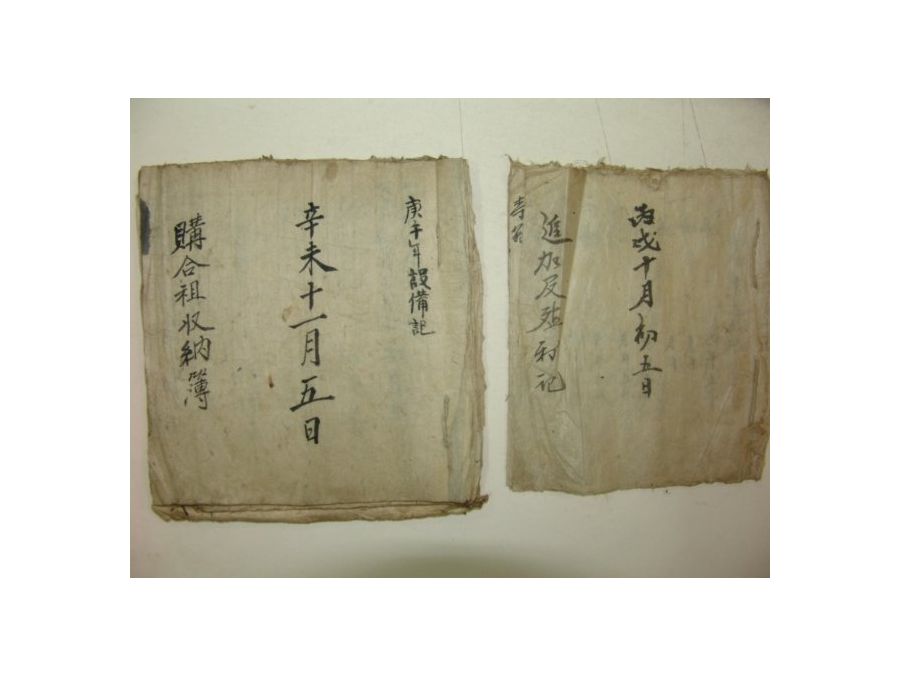 庚午年設備記
辛未十一月五日
購合祖収納簿
丙戌十月初五日
進加及 利記